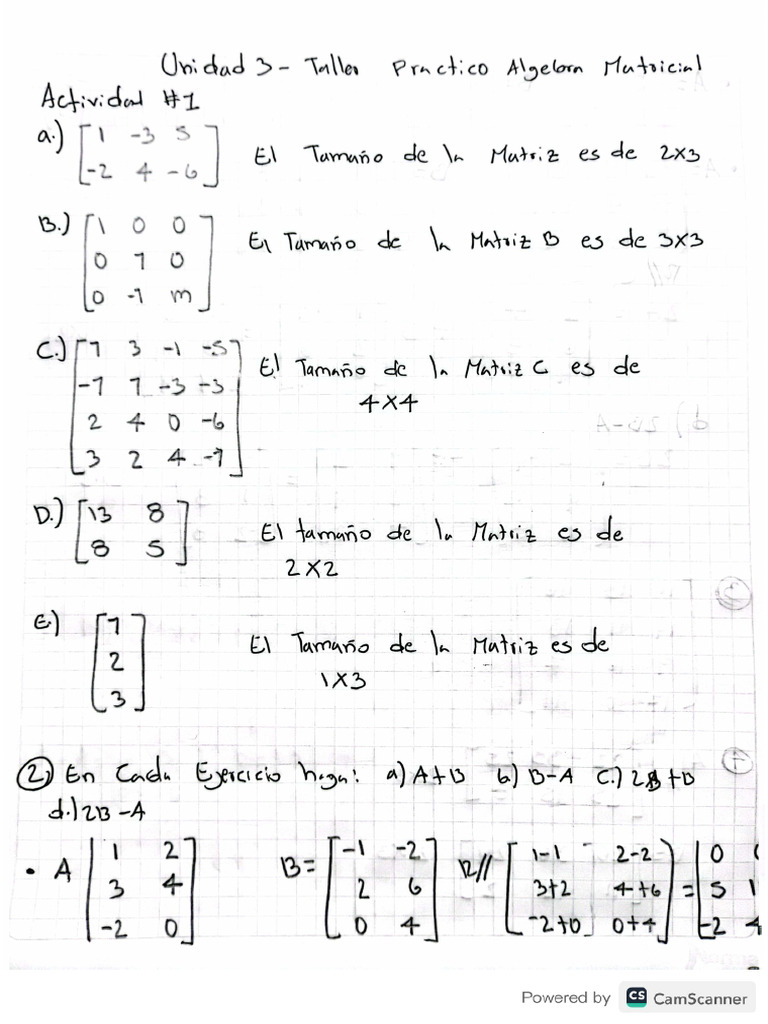 Unidad 3 - Taller Practico Algebra Matricial
Actividad #1
a.) [1 -3 5
-2 4 -6] El Tamaño de la Matriz es de 2x3
B.) [1 0 0
0 7 0
0 -1 m] El Tamaño de la Matriz B es de 3x3
C.) [7 3 -1 -5
-7 7 -3 +3
2 4 0 -6
3 2 4 -7] El Tamaño de la Matriz C es de
4x4
D.) [13 8
8 5] El tamaño de la Matriz es de
2x2
E) [7
2
3] El Tamaño de la Matriz es de
1x3
② En Cada Ejercicio haga: a) A+B b) B-A C.) 2A+B
d.) 2B-A
• A [1 2
3 4
-2 0] B= [-1 -2
2 6
0 4] R// [1-1 2-2
3+2 4+6
-2+0 0+4] = [0
5 1
-2 4
Powered by CS CamScanner